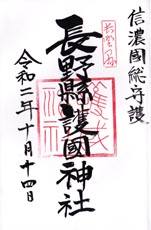 信濃國総守護
長野縣護國神社
令和二年十月十四日